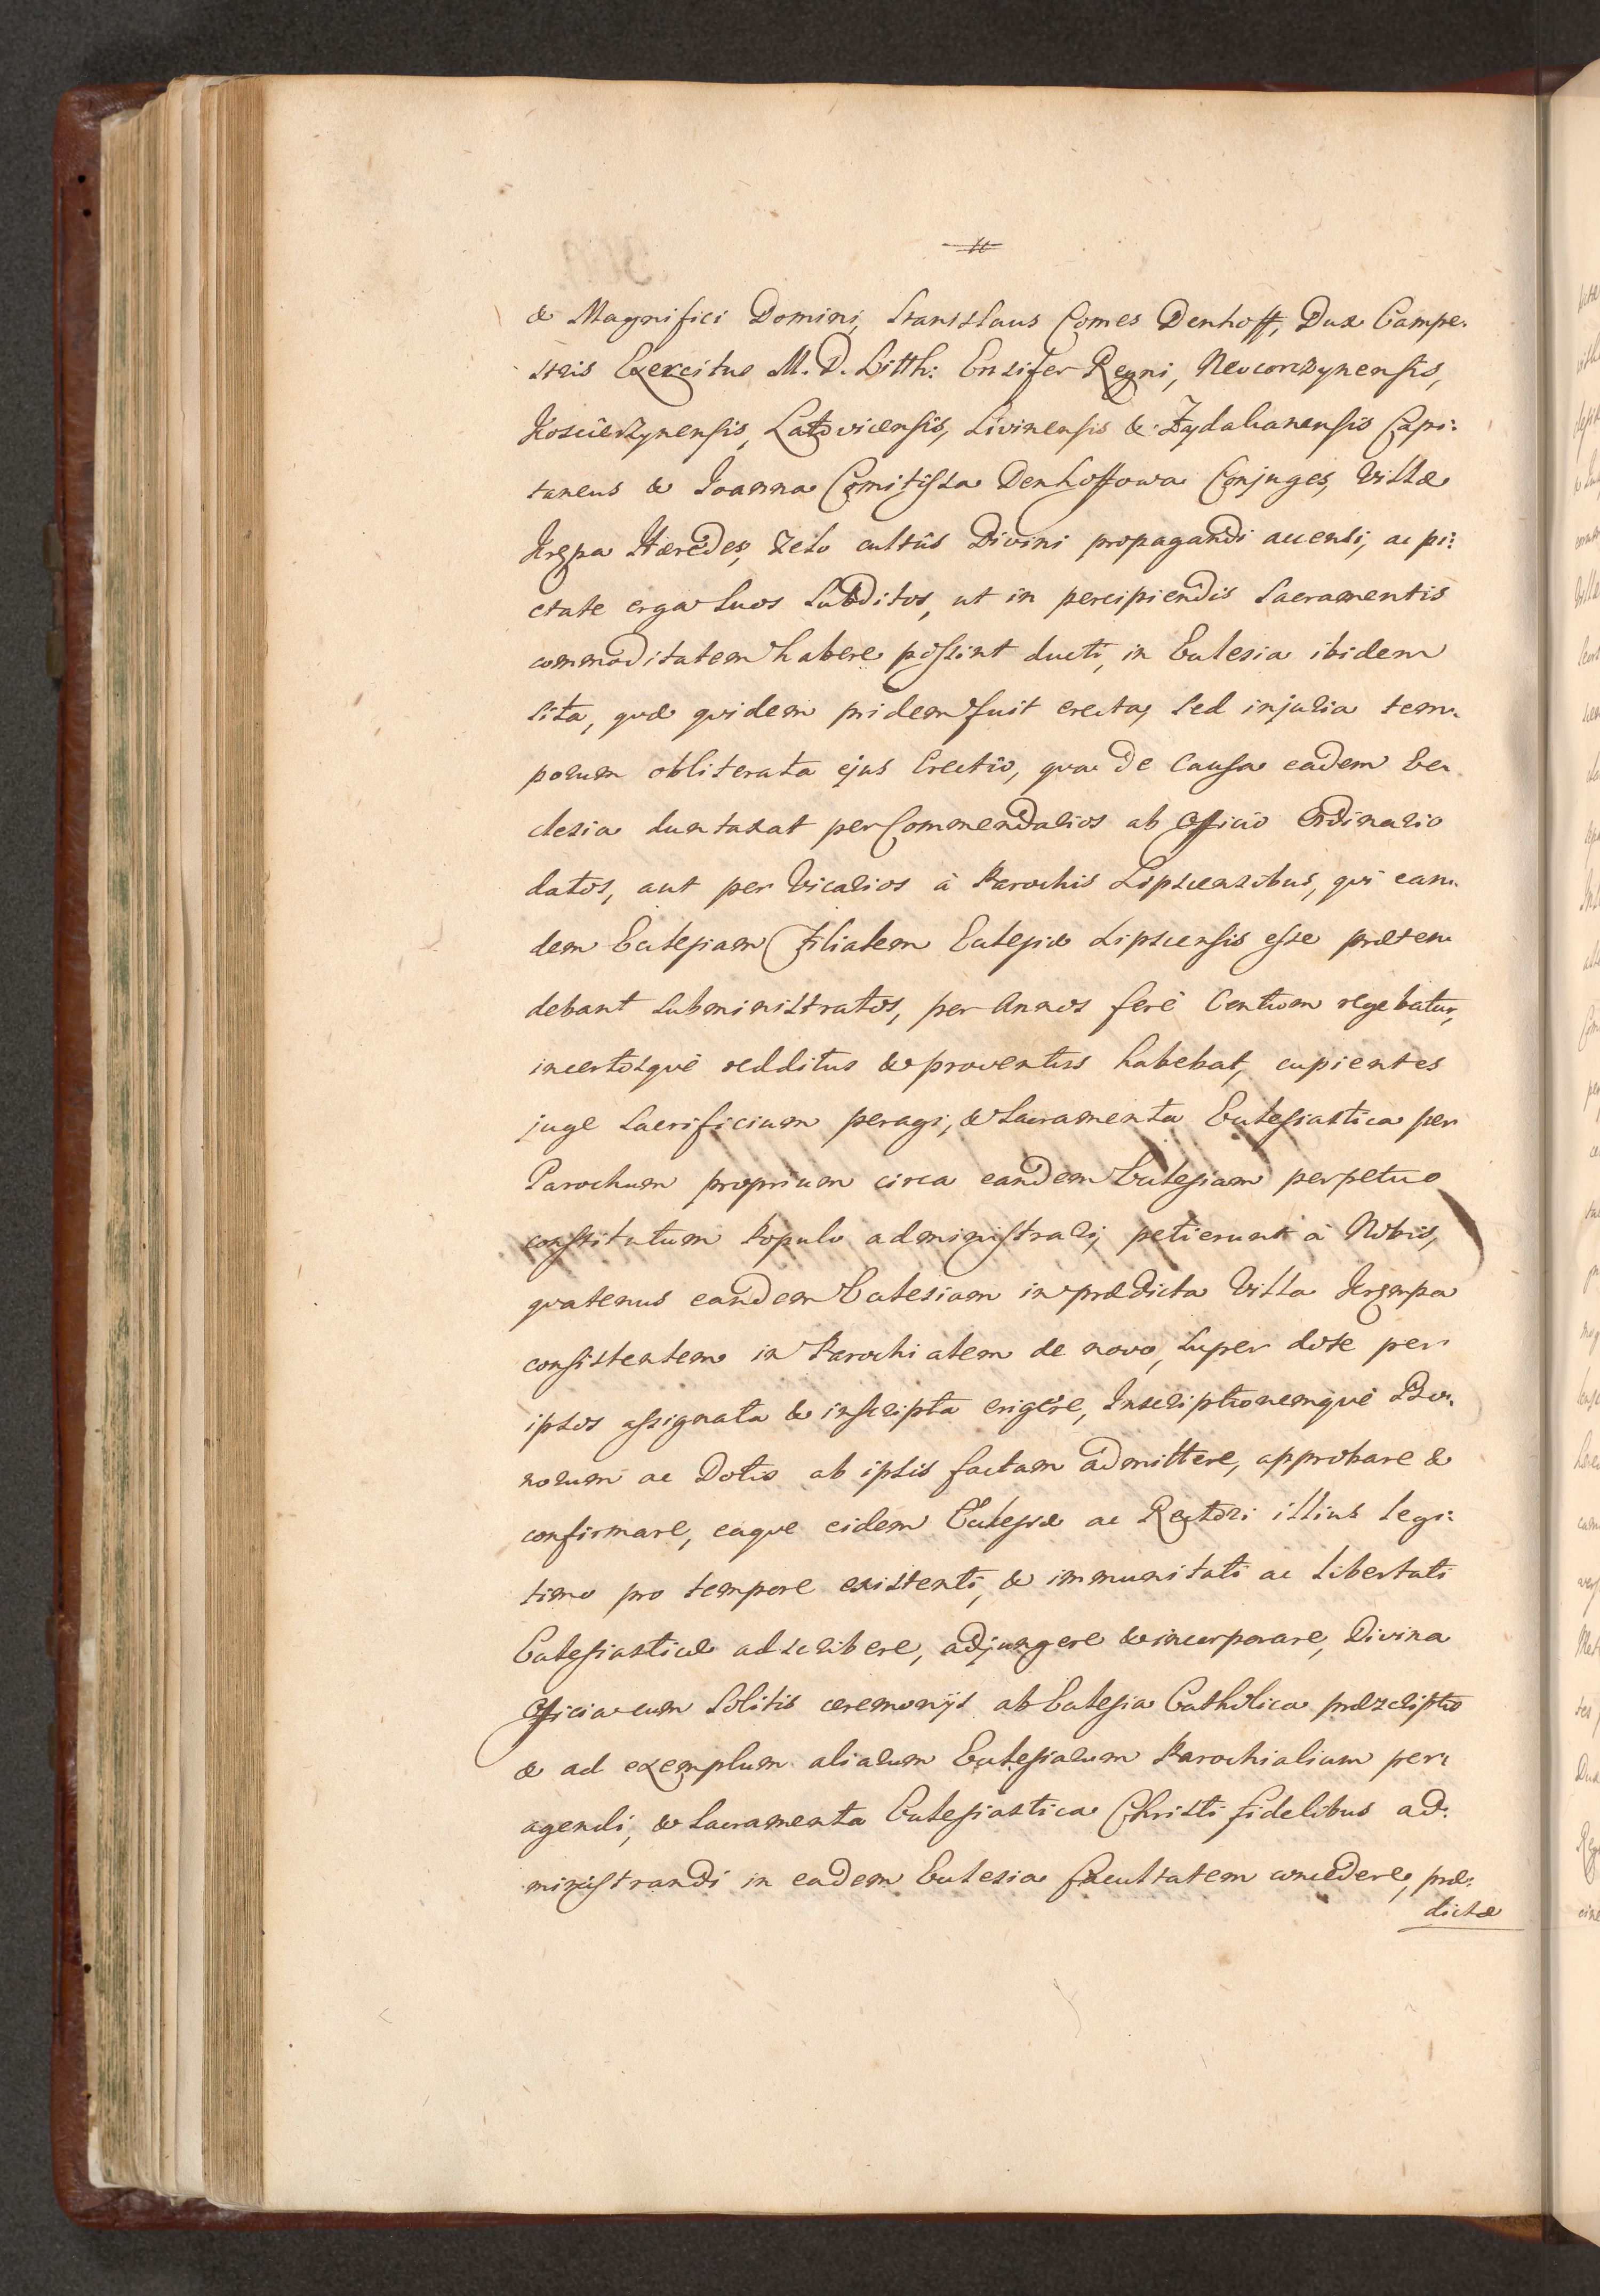 & Magnifici Domini, Stanislaus Comes Denhoff, Dux Campe:
stris Exercitus M. D. Litth: Ensifer Regni, Neocorczynensis,
Koscierzynensis, Latovicensis, Livinensis & Zydahanensis Capi:
taneus & Joanna Comitissa Denhoffowa Conjuges, Villæ
Krępa Hæredes, zelo cultûs Divini propagandi accensi, ac pi:
etate erga suos subditos, ut in percipiendis Sacramentis
commoditatem habere possint ducti, in Ecclesia ibidem
sita, quæ quidem pridem fuit erecta, sed injuria tem:
porum obliterata ejus Erectio, qua de Causa eadem Ec:
clesia duntaxat per Commendarios ab Officio Ordinario
datos, aut per Vicarios à Parochis Lipscensibus, qui ean:
dem Ecclesiam Filialem Ecclesiæ Lipscensis esse præten:
debant subministratos, per Annos ferè Centum regebatur,
incertosquè redditus & proventus habebat, cupientes
juge Sacrificium peragi, & Sacramenta Ecclesiastica per
Parochum proprium circa eandem Ecclesiam perpetuo
constitutum Populo administrari, petierunt à Nobis,
quatenus eandem Ecclesiam in prædicta Villa Krępa
consistentem in Parochialem de novo, super dote per
ipsos assignata & inscripta erigere, Inscriptionemquè Bo:
norum ac Dotis ab ipsis factam admittere, approbare &
confirmare, eaque eidem Ecclesiæ ac Rectori illius legi:
timo pro tempore existenti, & immunitati ac libertati
Ecclesiasticæ adscribere, adjungere & incorporare, Divina
Officia cum solitis ceremonijs ab Ecclesia Catholica præscriptis
& ad exemplum aliarum Ecclesiarum Parochialium per:
agendi, & Sacramenta Ecclesiastica Christi fidelibus ad:
ministrandi in eadem Ecclesia facultatem concedere, præ:
dictæ